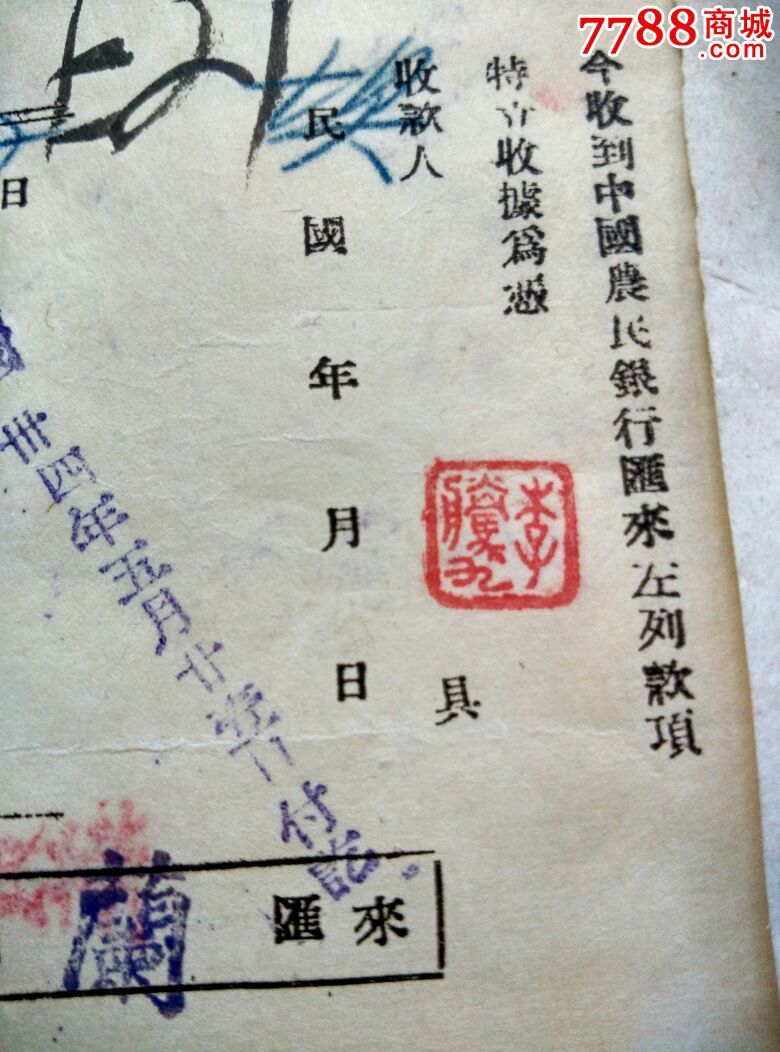 7788商城
.com
今收到中國農民銀行匯來左列款項
特立收據為憑
收款人
具
李騰九
民國 年 月 日
日
卅四年五月廿
付訖
來匯
蘭